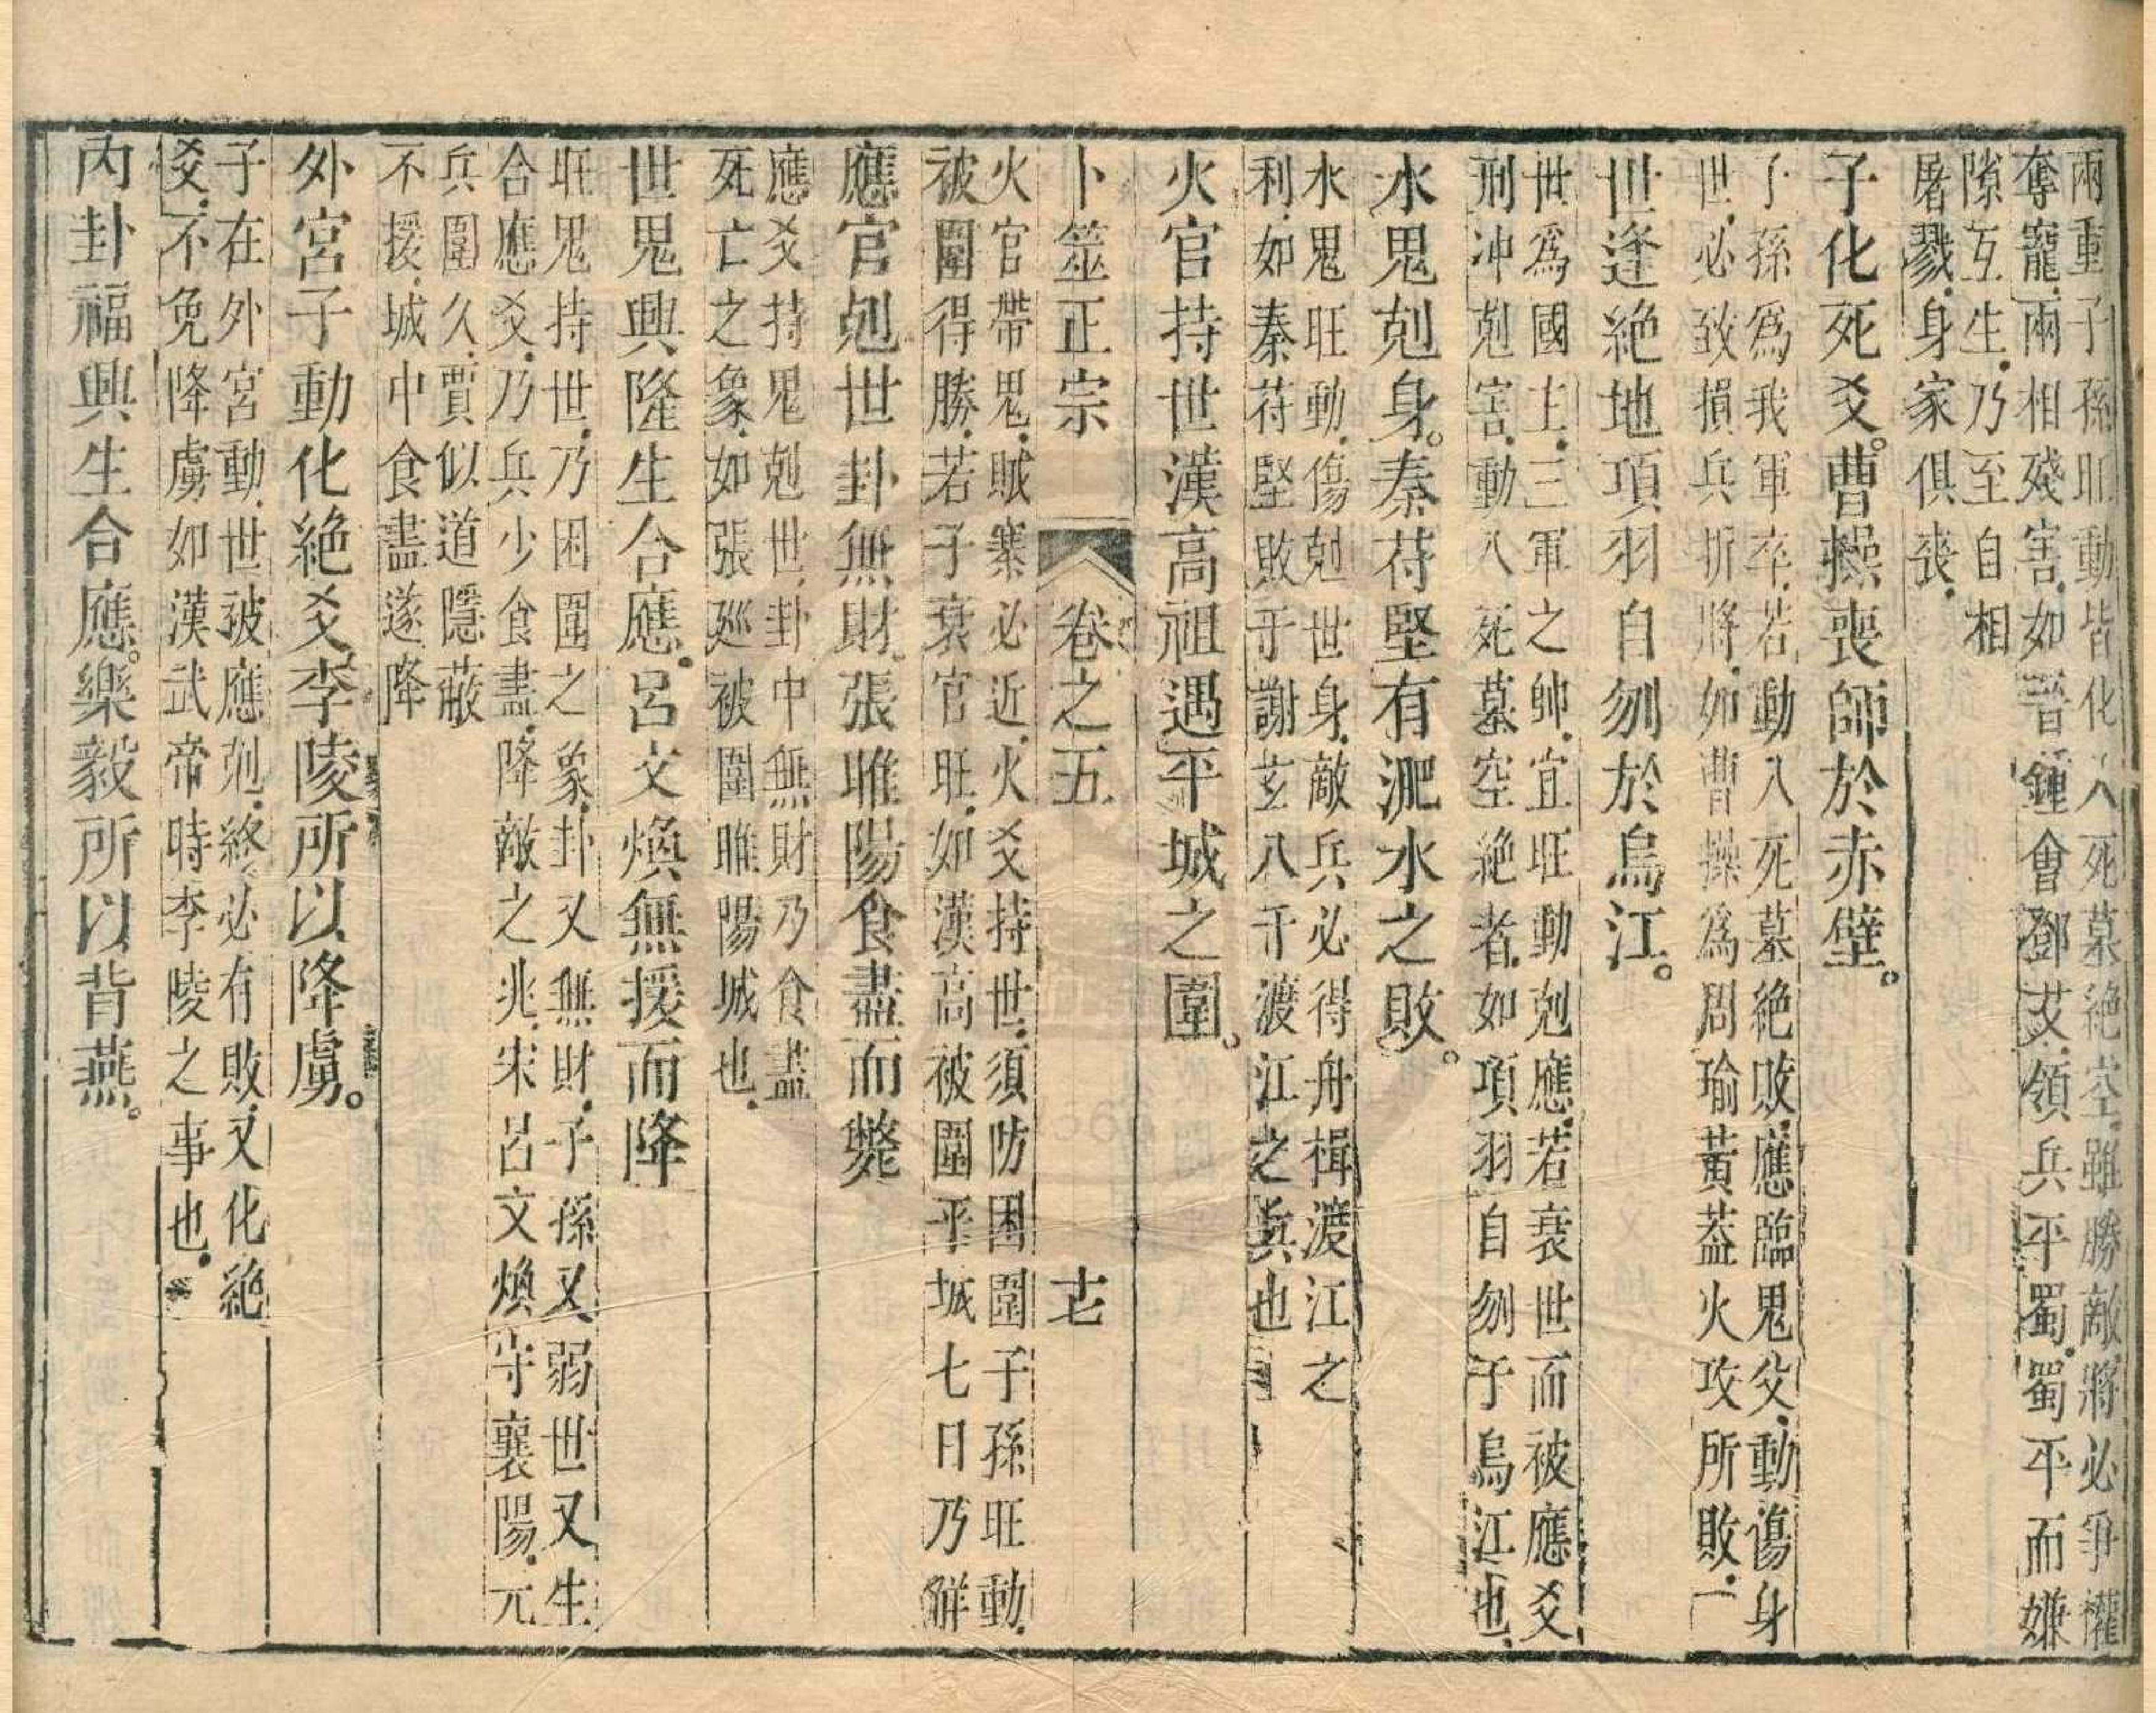 兩重子孫旺動皆化入死墓絶空.雖勝敵將必爭權
奪寵.兩相殘害.如晉鍾會鄧艾.領兵平蜀.蜀平而嫌
隙互生.乃至自相
屠戮.身家俱喪.
子化死爻。曹操喪師於赤壁。
子孫爲我軍卒.若動入死墓絶敗.應臨鬼爻.動傷身
世.必致損兵折將.如曹操爲周瑜黃葢火攻所敗.一
世逢絶地項羽自刎於烏江。
世爲國主.三軍之帥.宜旺動剋應.若衰世而被應爻
刑冲剋害.動入死墓空絶者.如項羽自刎于烏江也.
水鬼剋身。秦苻堅有淝水之敗。
水鬼旺動.傷剋世身.敵兵必得舟楫渡江之
利.如秦苻堅敗于謝玄八千渡江之兵也
火官持世漢高祖遇平城之圍。
卜筮正宗 卷之五 十七
火官帶鬼.賊寨必近.火爻持世.須防困圍子孫旺動.
被圍得勝.若子衰官旺.如漢高被圍平城七日乃解
應官剋世卦無財.張睢陽食盡而斃
應爻持鬼剋世.卦中無財乃食盡
死亡之象.如張巡被圍睢陽城也.
世鬼興隆生合應.呂文煥無援而降
旺鬼持世.乃困圍之象.卦又無財.子孫又弱世又生
合應爻.乃兵少食盡.降敵之兆.宋呂文煥守襄陽.元
兵圍久.賈似道隱蔽
不援.城中食盡遂降
外宮子動化絶爻.李陵所以降虜。
子在外宮動.世被應剋.終必有敗.又化絶
爻.不免降虜如漢武帝時李陵之事也.
內卦福興生合應。樂毅所以背燕。